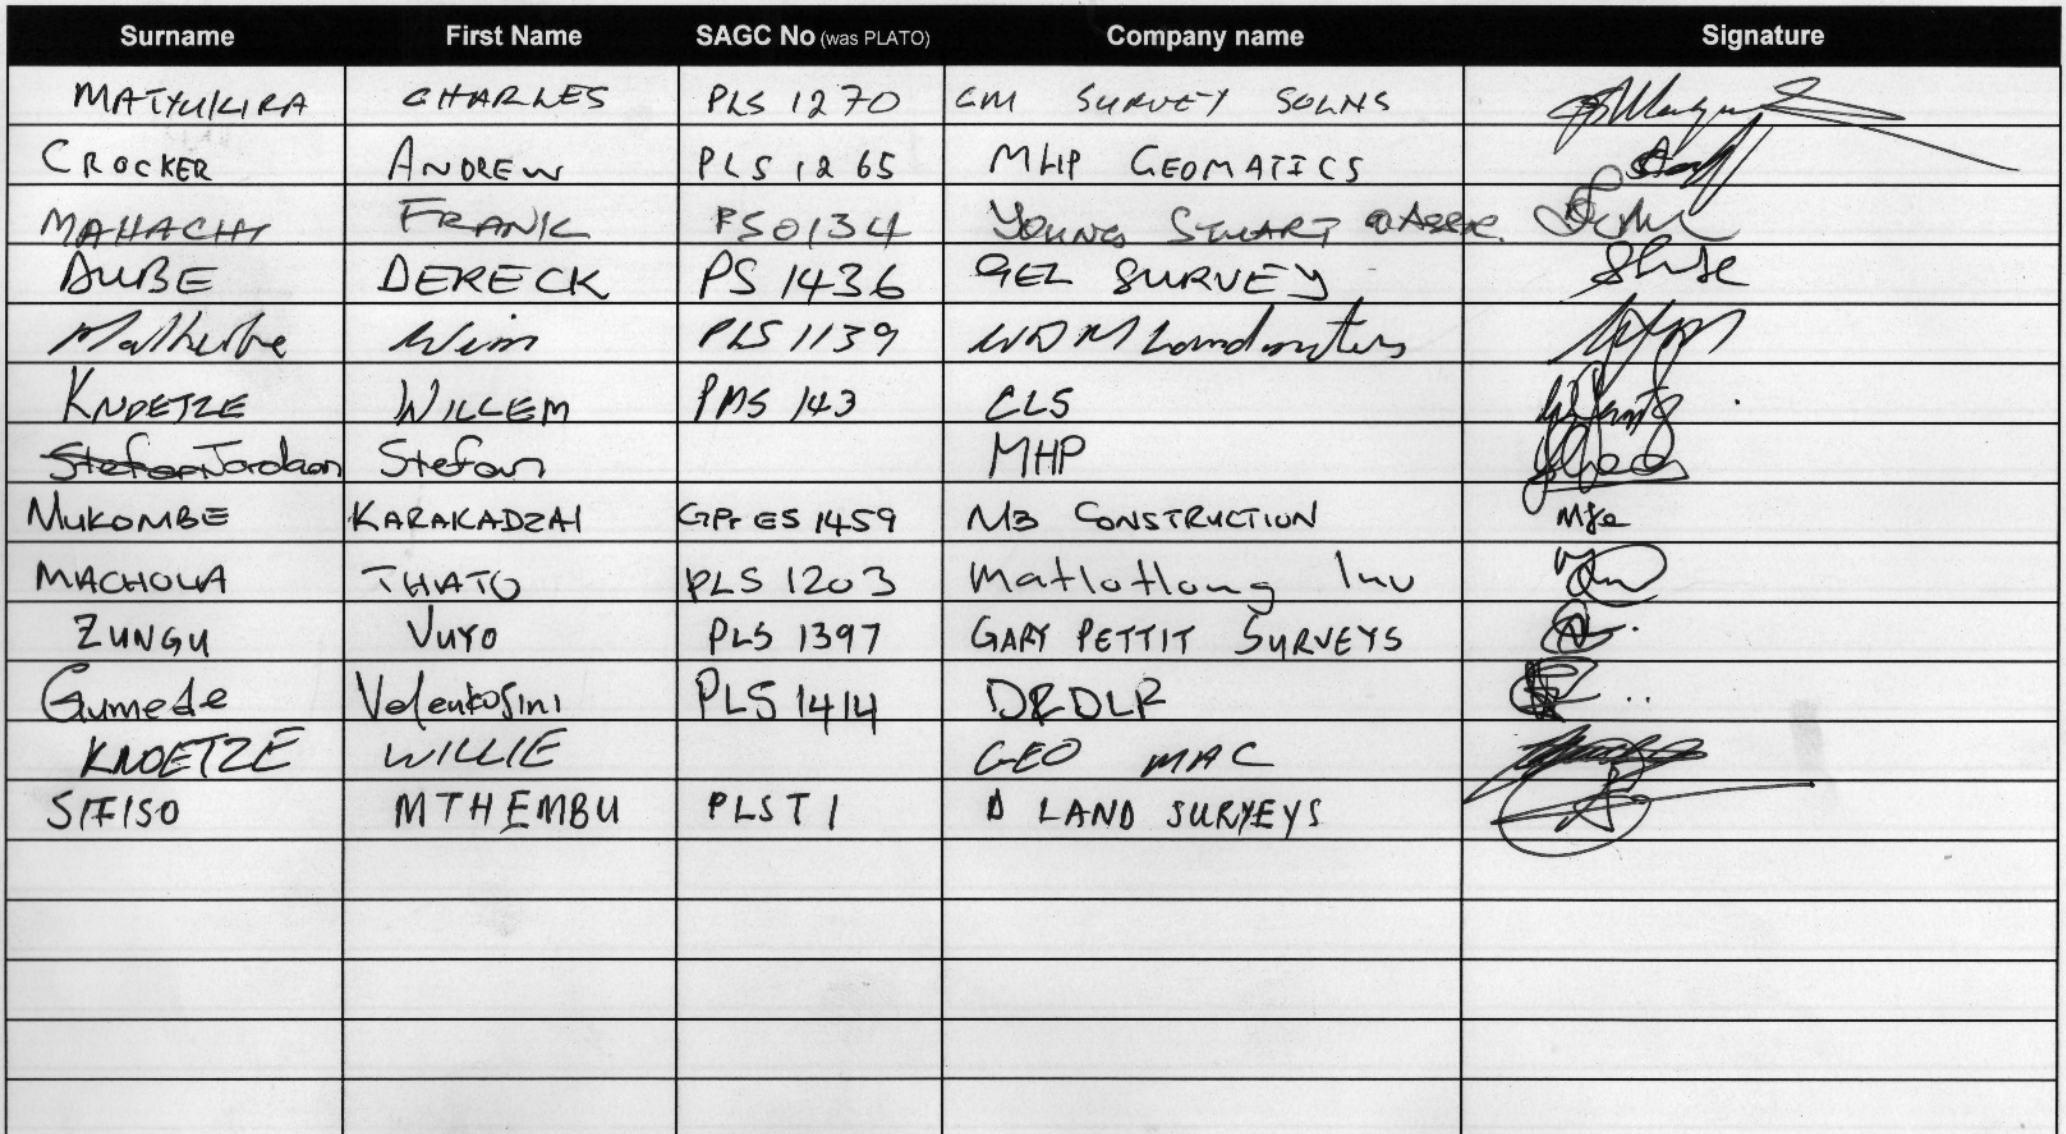 Surname First Name SAGC No (was PLATO) Company name Signature
MATYUKIRA CHARLES PLS 1270 CM SURVEY SOLNS
CROCKER ANDREW PLS 1265 MHP GEOMATICS
MAHACHI FRANK PS0134 YOUNG STUART & ASSOC.
DUBE DERECK PS 1436 GEL SURVEY
Malherbe Wim PLS 1139 WDM Landmeters
KNOETZE WILLEM PMS 143 CLS
Stefan Jordaan Stefan MHP
MUKOMBE KARAKADZAI GPr ES 1459 M3 CONSTRUCTION
MACHOLA THATO PLS 1203 Matlotlong Inv
ZUNGU VUYO PLS 1397 GARY PETTIT SURVEYS
Gumede Velenkosini PLS 1414 DRDLR
KNOETZE WILLIE GEO MAC
SIFISO MTHEMBU PLS T1 D LAND SURVEYS